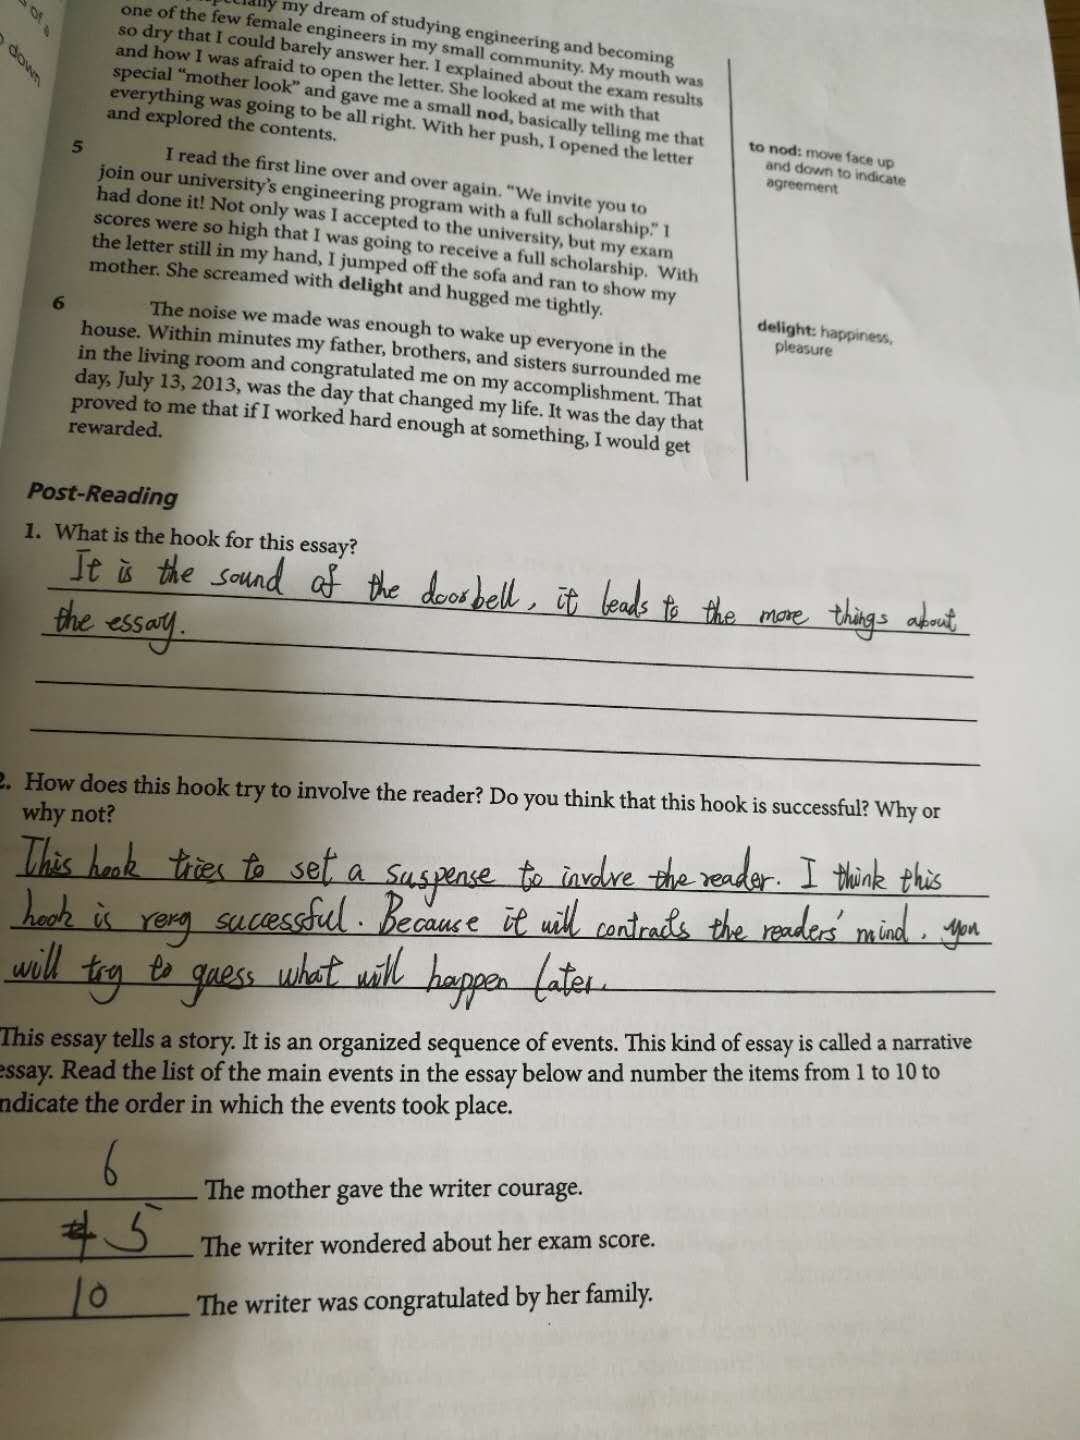 my dream of studying engineering and becoming
one of the few female engineers in my small community. My mouth was
so dry that I could barely answer her. I explained about the exam results
and how I was afraid to open the letter. She looked at me with that
special “mother look” and gave me a small nod, basically telling me that
everything was going to be all right. With her push, I opened the letter
and explored the contents.
to nod: move face up
and down to indicate
agreement
5 I read the first line over and over again. “We invite you to
join our university’s engineering program with a full scholarship.” I
had done it! Not only was I accepted to the university, but my exam
scores were so high that I was going to receive a full scholarship. With
the letter still in my hand, I jumped off the sofa and ran to show my
mother. She screamed with delight and hugged me tightly.
delight: happiness,
pleasure
6 The noise we made was enough to wake up everyone in the
house. Within minutes my father, brothers, and sisters surrounded me
in the living room and congratulated me on my accomplishment. That
day, July 13, 2013, was the day that changed my life. It was the day that
proved to me that if I worked hard enough at something, I would get
rewarded.
down
Post-Reading
1. What is the hook for this essay?
It is the sound of the doorbell, it leads to the more things about
the essay.
2. How does this hook try to involve the reader? Do you think that this hook is successful? Why or
why not?
This hook tries to set a suspense to involve the reader. I think this
hook is very successful. Because it will contracts the readers' mind. you
will try to guess what will happen later.
This essay tells a story. It is an organized sequence of events. This kind of essay is called a narrative
essay. Read the list of the main events in the essay below and number the items from 1 to 10 to
indicate the order in which the events took place.
6 The mother gave the writer courage.
5 The writer wondered about her exam score.
10 The writer was congratulated by her family.